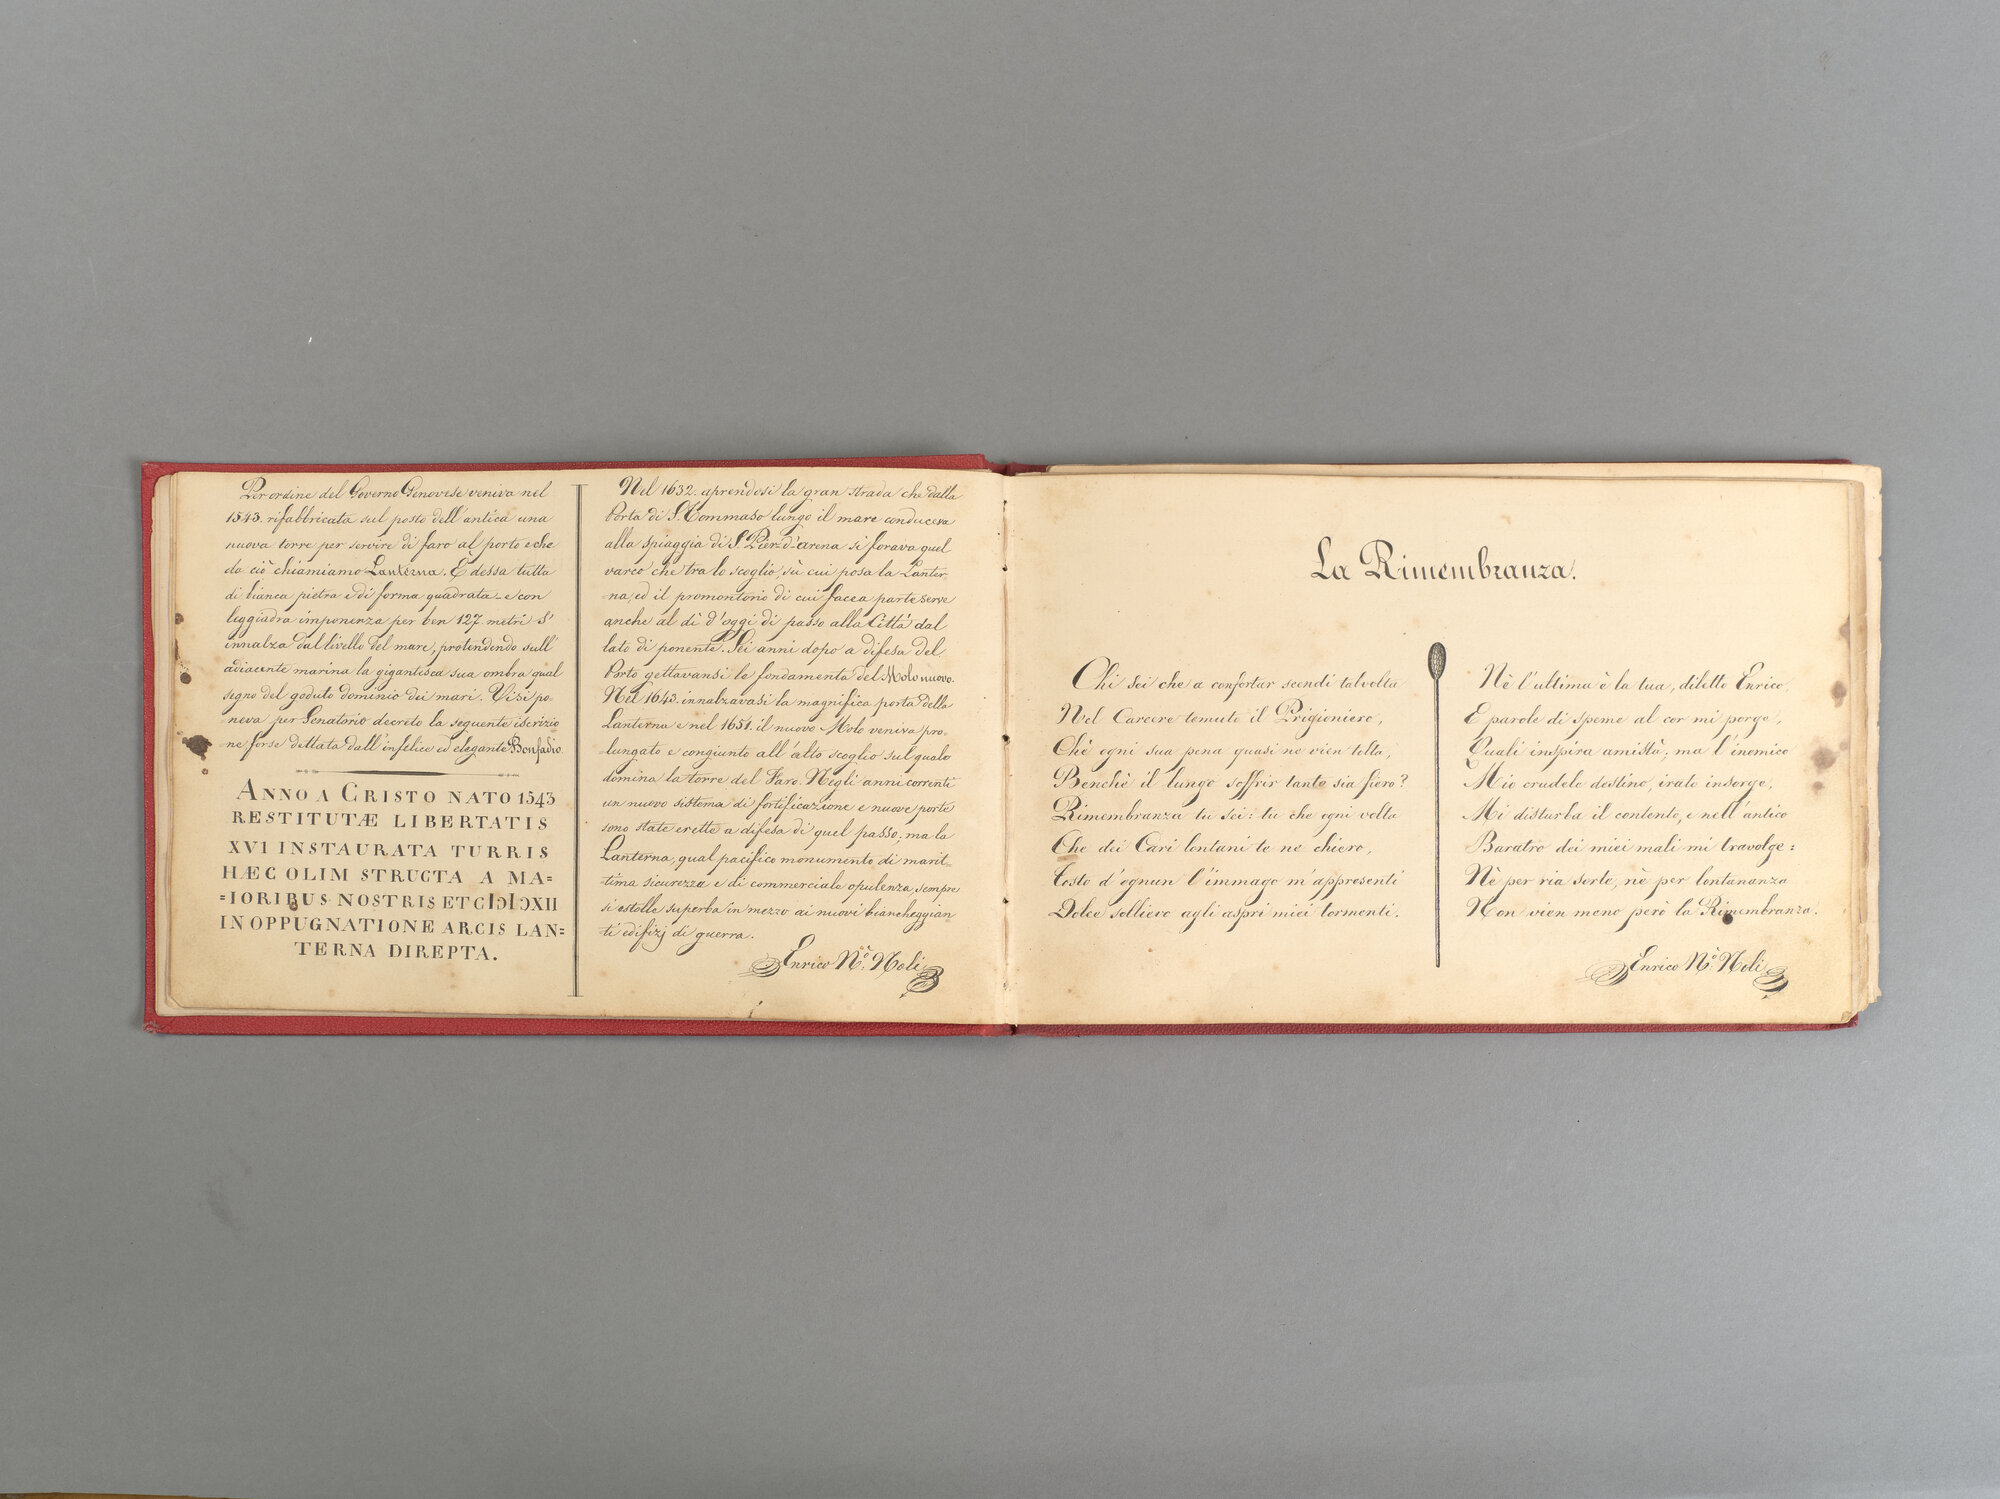 Per ordine del Governo Genovese veniva nel
1543. rifabbricata sul posto dell'antica una
nuova torre per servire di faro al porto e che
da ciò chiamiamo Lanterna. È dessa tutta
di bianca pietra e di forma quadrata e con
leggiadra imponenza per ben 127 metri s'
innalza dal livello del mare; protendendo sull'
adiacente marina la gigantesca sua ombra qual
segno del goduto dominio dei mari. Vi si po-
neva per Senatorio decreto la seguente iscrizio
ne forse dettata dall'infelice ed elegante Bonfadio.
ANNO A CRISTO NATO 1543
RESTITUTÆ LIBERTATIS
XVI INSTAURATA TURRIS
HÆC OLIM STRUCTA A MA=
=IORIBUS NOSTRIS ET CIƆIƆXII
IN OPPUGNATIONE ARCIS LAN=
TERNA DIREPTA.
Nel 1632. aprendosi la gran strada che dalla
Porta di S. Tommaso lungo il mare conduceva
alla spiaggia di S. Pier-d'arena si forava quel
varco che tra lo scoglio, sù cui posa la Lanter
na, ed il promontorio di cui facea parte serve
anche al dì d'oggi di passo alla Città dal
lato di ponente. Sei anni dopo a difesa del
Porto gettavansi le fondamenta del Molo nuovo.
Nel 1643. innalzavasi la magnifica porta della
Lanterna e nel 1651. il nuovo Molo veniva pro-
lungato e congiunto all'alto scoglio sul quale
domina la torre del Faro. Negli anni correnti
un nuovo sistema di fortificazione e nuove porte
sono state erette a difesa di quel passo; ma la
Lanterna, qual pacifico monumento di marit-
-tima sicurezza e di commerciale opulenza, sempre
si estolle superba in mezzo ai nuovi biancheggian
-ti edifizj di guerra.
Enrico N.º Noli
La Rimembranza.
Chi sei che a confortar scendi talvolta
Nel Carcere temuto il Prigioniero,
Chè ogni sua pena quasi ne vien tolta,
Benchè il lungo soffrir tanto sia fiero?
Rimembranza tu sei: tu che ogni volta
Che dei Cari lontani te ne chiero,
Tosto d'ognun l'immago m'appresenti
Dolce sollievo agli aspri miei tormenti.
Nè l'ultima è la tua, diletto Enrico,
E parole di speme al cor mi porge,
Quali inspira amistà; ma l'inemico
Mio crudele destino, irato insorge,
Mi disturba il contento, e nell'antico
Baratro dei miei mali mi travolge:
Nè per ria sorte, nè per lontananza
Non vien meno però la Rimembranza.
Enrico N.º Noli